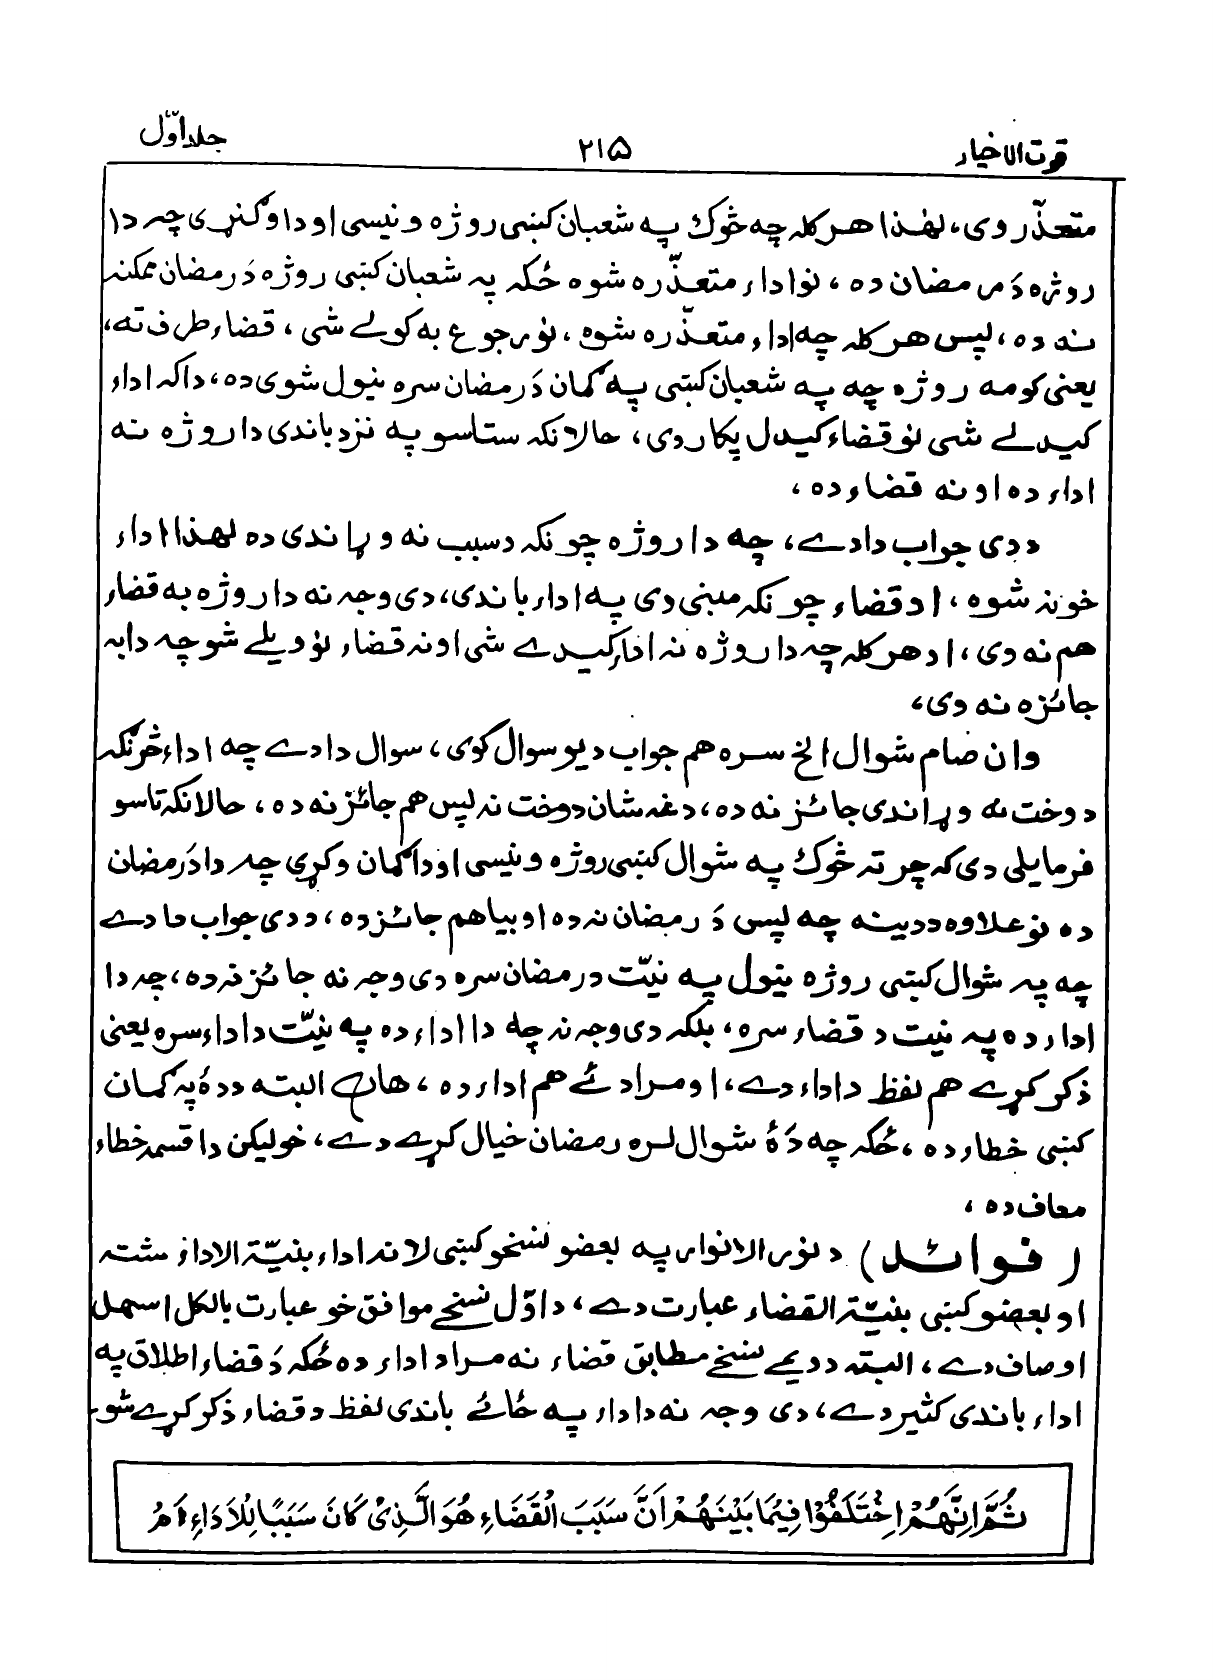 قوت الاخیار ۲۱۵ جلد اوّل
متعذّر وی، لهٰذا هر کله چه څوک په شعبان کښی روژه ونیسی او دا وګنړی چه دا
روژه دَ رمضان ده، نو اداء متعذّره شوه ځکه په شعبان کښی روژه دَ رمضان ممکنه
نه ده، پس هر کله چه اداء متعذّره شوه، نو رجوع به کولے شی، قضاء طرف ته،
یعنی کومه روژه چه په شعبان کښی په ګمان دَ رمضان سره نیول شوی ده، دا که اداء
کیدلے شی نو قضاء کیدل پکار دی، حالانکه ستاسو په نزد باندی دا روژه نه
اداء ده او نه قضاء ده،
ددی جواب دا دے، چه دا روژه چونکه د سبب نه وړاندی ده لهذا اداء
خو نه شوه، او قضاء چونکه مبنی دی په اداء باندی، دی وجه نه دا روژه به قضاء
هم نه وی، او هر کله چه دا روژه نه اداء کیدے شی او نه قضاء نو ویلے شو چه دا به
جائزه نه وی،
وان صام شوال الخ سره هم جواب د یو سوال کوی، سوال دا دے چه اداء څرنګه
د وخت نه وړاندی جائز نه ده، دغه شان د وخت نه پس هم جائز نه ده، حالانکه تاسو
فرمایلی دی که چرته څوک په شوال کښی روژه ونیسی او دا ګمان وکړی چه دا دَ رمضان
ده نو علاوه ددینه چه پس دَ رمضان نه ده او بیا هم جائز ده، ددی جواب دا دے
چه په شوال کښی روژه نیول په نیّت د رمضان سره دی وجه نه جائز نه ده، چه دا
اداء ده په نیت د قضاء سره، بلکه دی وجه نه چه دا اداء ده په نیّت د اداء سره یعنی
ذکر کړے هم لفظ د اداء دے، او مراد ئے هم اداء ده، هاں البته ددهٔ په ګمان
کښی خطاء ده، ځکه چه دهٔ شوال لره رمضان خیال کړے دے، خو لیکن دا قسمه خطاء
معاف ده،
(فوائد) د نور الانوار په بعضو نسخو کښی لانه اداء بنیّة الاداء شته
او بعضو کښی بنیّة القضاء عبارت دے، د اوّل نسخے موافق خو عبارت بالکل اسهل
او صاف دے، البته د دیمے نسخے مطابق قضاء نه مراد اداء ده ځکه دَ قضاء اطلاق په
اداء باندی کثیر دے، دی وجه نه د اداء په ځائے باندی لفظ د قضاء ذکر کړے شو۔
ثُمَّ اِنَّهُمْ اخْتَلَفُوْا فِيْمَا بَيْنَهُمْ اَنَّ سَبَبَ الْقَضَاءِ هُوَ الَّذِىْ كَانَ سَبَبًا لِلْاَدَاءِ اَمْ